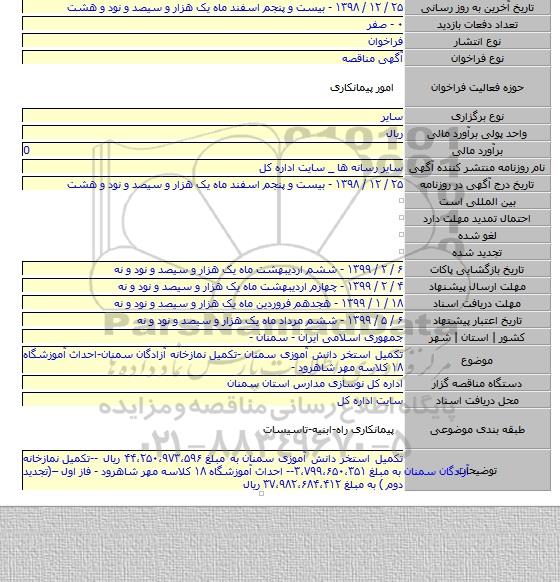 تاریخ آخرین به روز رسانی ۲۵ / ۱۲ / ۱۳۹۸ - بیست و پنجم اسفند ماه یک هزار و سیصد و نود و هشت
تعداد دفعات بازدید ۰ - صفر
نوع انتشار فراخوان
نوع فراخوان آگهی مناقصه
حوزه فعالیت فراخوان امور پیمانکاری
نوع برگزاری سایر
واحد پولی برآورد مالی ریال
برآورد مالی 0
نام روزنامه منتشر کننده آگهی سایر رسانه ها _ سایت اداره کل
تاریخ درج آگهی در روزنامه ۲۵ / ۱۲ / ۱۳۹۸ - بیست و پنجم اسفند ماه یک هزار و سیصد و نود و هشت
بین المللی است
احتمال تمدید مهلت دارد
لغو شده
تجدید شده
تاریخ بازگشایی پاکات ۶ / ۲ / ۱۳۹۹ - ششم اردیبهشت ماه یک هزار و سیصد و نود و نه
مهلت ارسال پیشنهاد ۴ / ۲ / ۱۳۹۹ - چهارم اردیبهشت ماه یک هزار و سیصد و نود و نه
مهلت دریافت اسناد ۱۸ / ۱ / ۱۳۹۹ - هجدهم فروردین ماه یک هزار و سیصد و نود و نه
تاریخ اعتبار پیشنهاد ۶ / ۵ / ۱۳۹۹ - ششم مرداد ماه یک هزار و سیصد و نود و نه
کشور | استان | شهر جمهوری اسلامی ایران - سمنان -
موضوع تکمیل استخر دانش آموزی سمنان -تکمیل نمازخانه آزادگان سمنان-احداث آموزشگاه
۱۸ کلاسه مهر شاهرود -
دستگاه مناقصه گزار اداره کل نوسازی مدارس استان سمنان
محل دریافت اسناد سایت اداره کل
طبقه بندی موضوعی پیمانکاری راه-ابنیه-تاسیسات
تکمیل استخر دانش آموزی سمنان به مبلغ ۴۴،۲۵۰،۹۷۳،۵۹۶ ریال --تکمیل نمازخانه
توضیحات آزادگان سمنان به مبلغ ۳،۷۹۹،۶۵۰،۳۵۱-- احداث آموزشگاه ۱۸ کلاسه مهر شاهرود - فاز اول –(تجدید
دوم ) به مبلغ ۳۷،۹۸۲،۶۸۴،۴۱۲ ریال
ParsNamadData
پایگاه اطلاع رسانی مناقصه و مزایده
۰۲۱-۸۸۳۴۹۶۷۰-۵